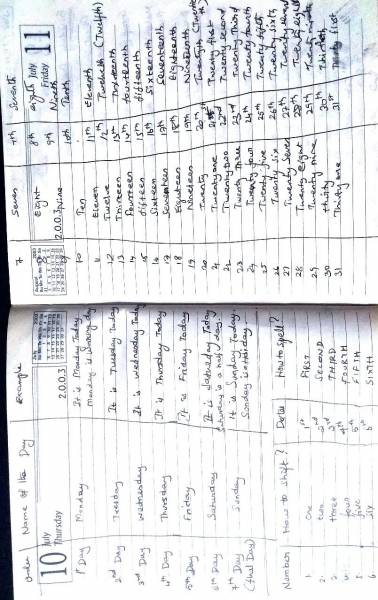 Order Name of the Day Example
10 July Thursday 2003
1st Day Monday It is Monday Today
Monday is working day
2nd Day Tuesday It is Tuesday Today
3rd Day Wednesday It is Wednesday Today
4th Day Thursday It is Thursday Today
5th Day Friday It is Friday Today
6th Day Saturday It is Saturday Today
Saturday is a half day
7th Day Sunday It is Sunday Today
(final Day) Sunday is Holiday
Number How to shift? Date How to Spell?
1 one 1st FIRST
2 two 2nd SECOND
3 three 3rd THIRD
4 four 4th FOURTH
5 five 5th FIFTH
6 six 6th SIXTH
7 Seven 7th Seventh
July Friday 11
8 Eight 8th eighth
2003
9 Nine 9th Ninth
10 Ten 10th Tenth
11 Eleven 11th Eleventh
12 Twelve 12th (Twelfth)
13 Thirteen 13th Thirteenth
14 Fourteen 14th fourteenth
15 fifteen 15th fifteenth
16 Sixteen 16th Sixteenth
17 Seventeen 17th Seventeenth
18 Eighteen 18th Eighteenth
19 Nineteen 19th Nineteenth
20 Twenty 20th
21 Twenty one
22 Twenty two 22nd Twenty second
23 Twenty Three 23rd Twenty Third
24 Twenty four 24th Twenty fourth
25 Twenty five 25th Twenty fifth
26 Twenty six 26th Twenty sixth
27 Twenty Seven 27th
28 Twenty Eight 28th
29 Twenty nine 29th
30 thirty 30th
31 Thirty one 31st Thirty first